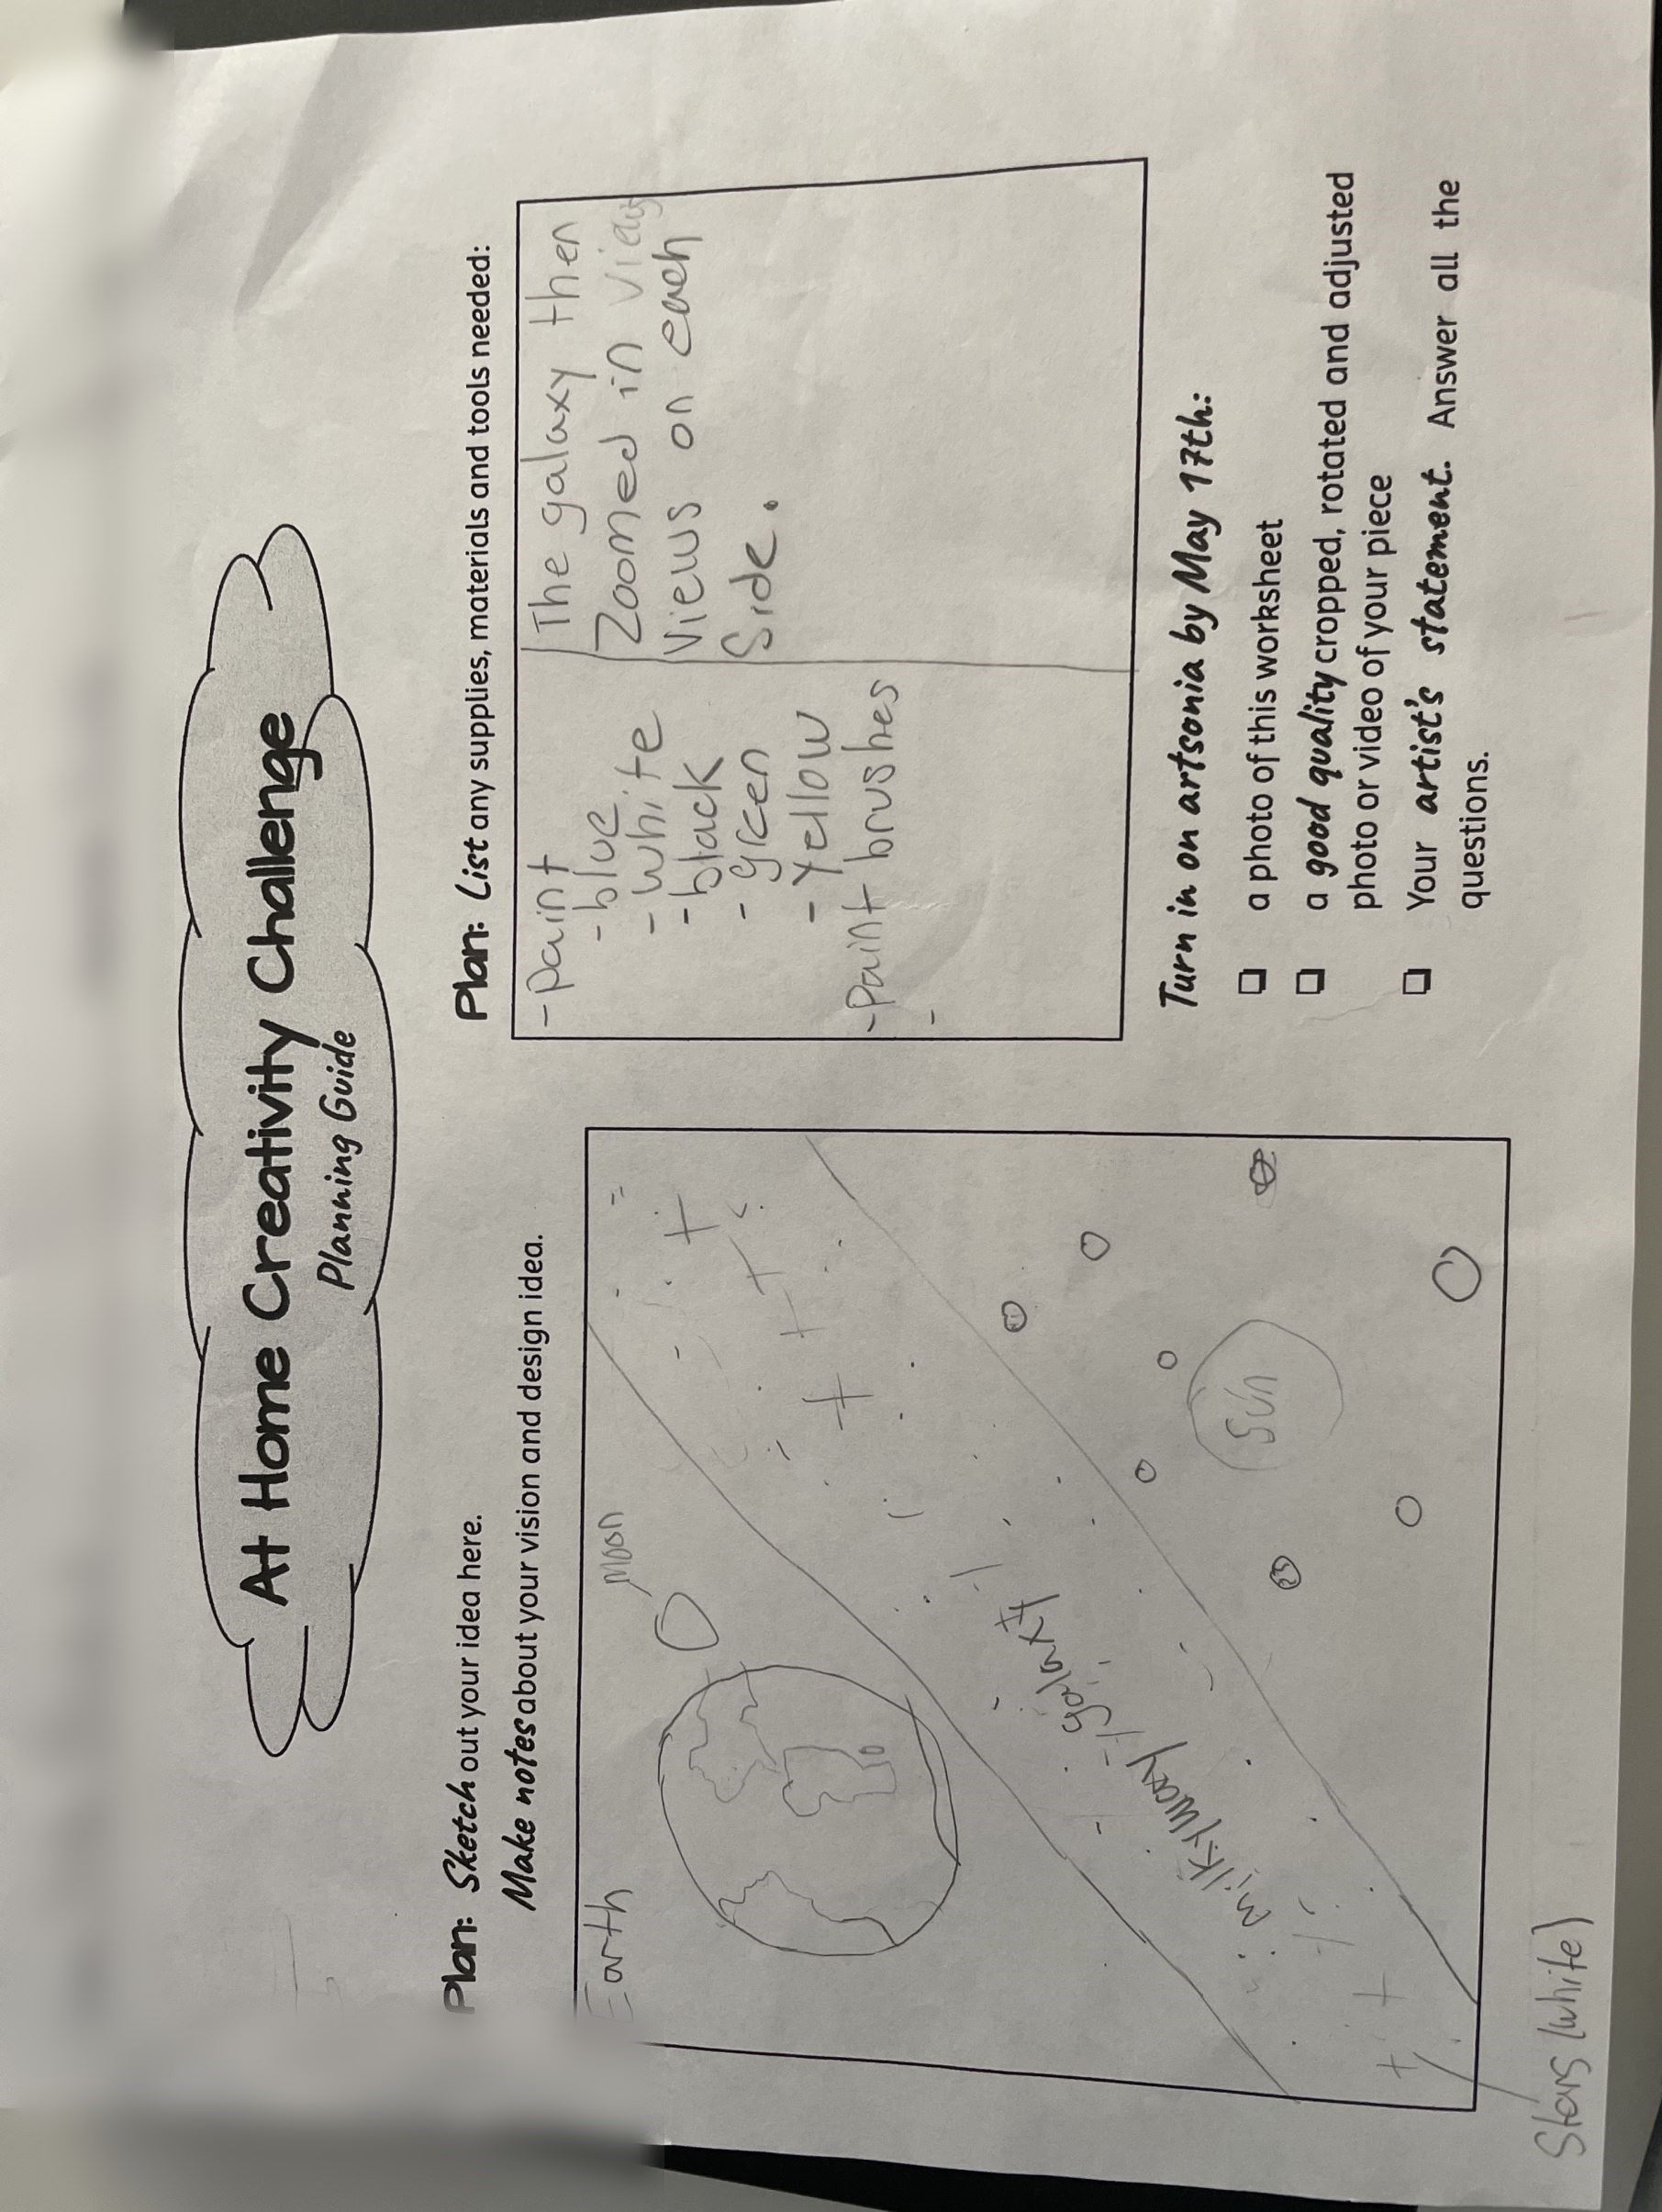 At Home Creativity Challenge
Planning Guide
Plan: Sketch out your idea here.
Make notes about your vision and design idea.
Earth
Moon
milkyway galaxy
Sun
Stars (white)
Plan: List any supplies, materials and tools needed:
-Paint
-blue
-white
-black
-green
-Yellow
-Paint brushes
-
The galaxy then
Zoomed in
Views on each
Side.
Turn in on artsonia by May 17th:
❏ a photo of this worksheet
❏ a good quality cropped, rotated and adjusted
photo or video of your piece
❏ Your artist's statement. Answer all the
questions.